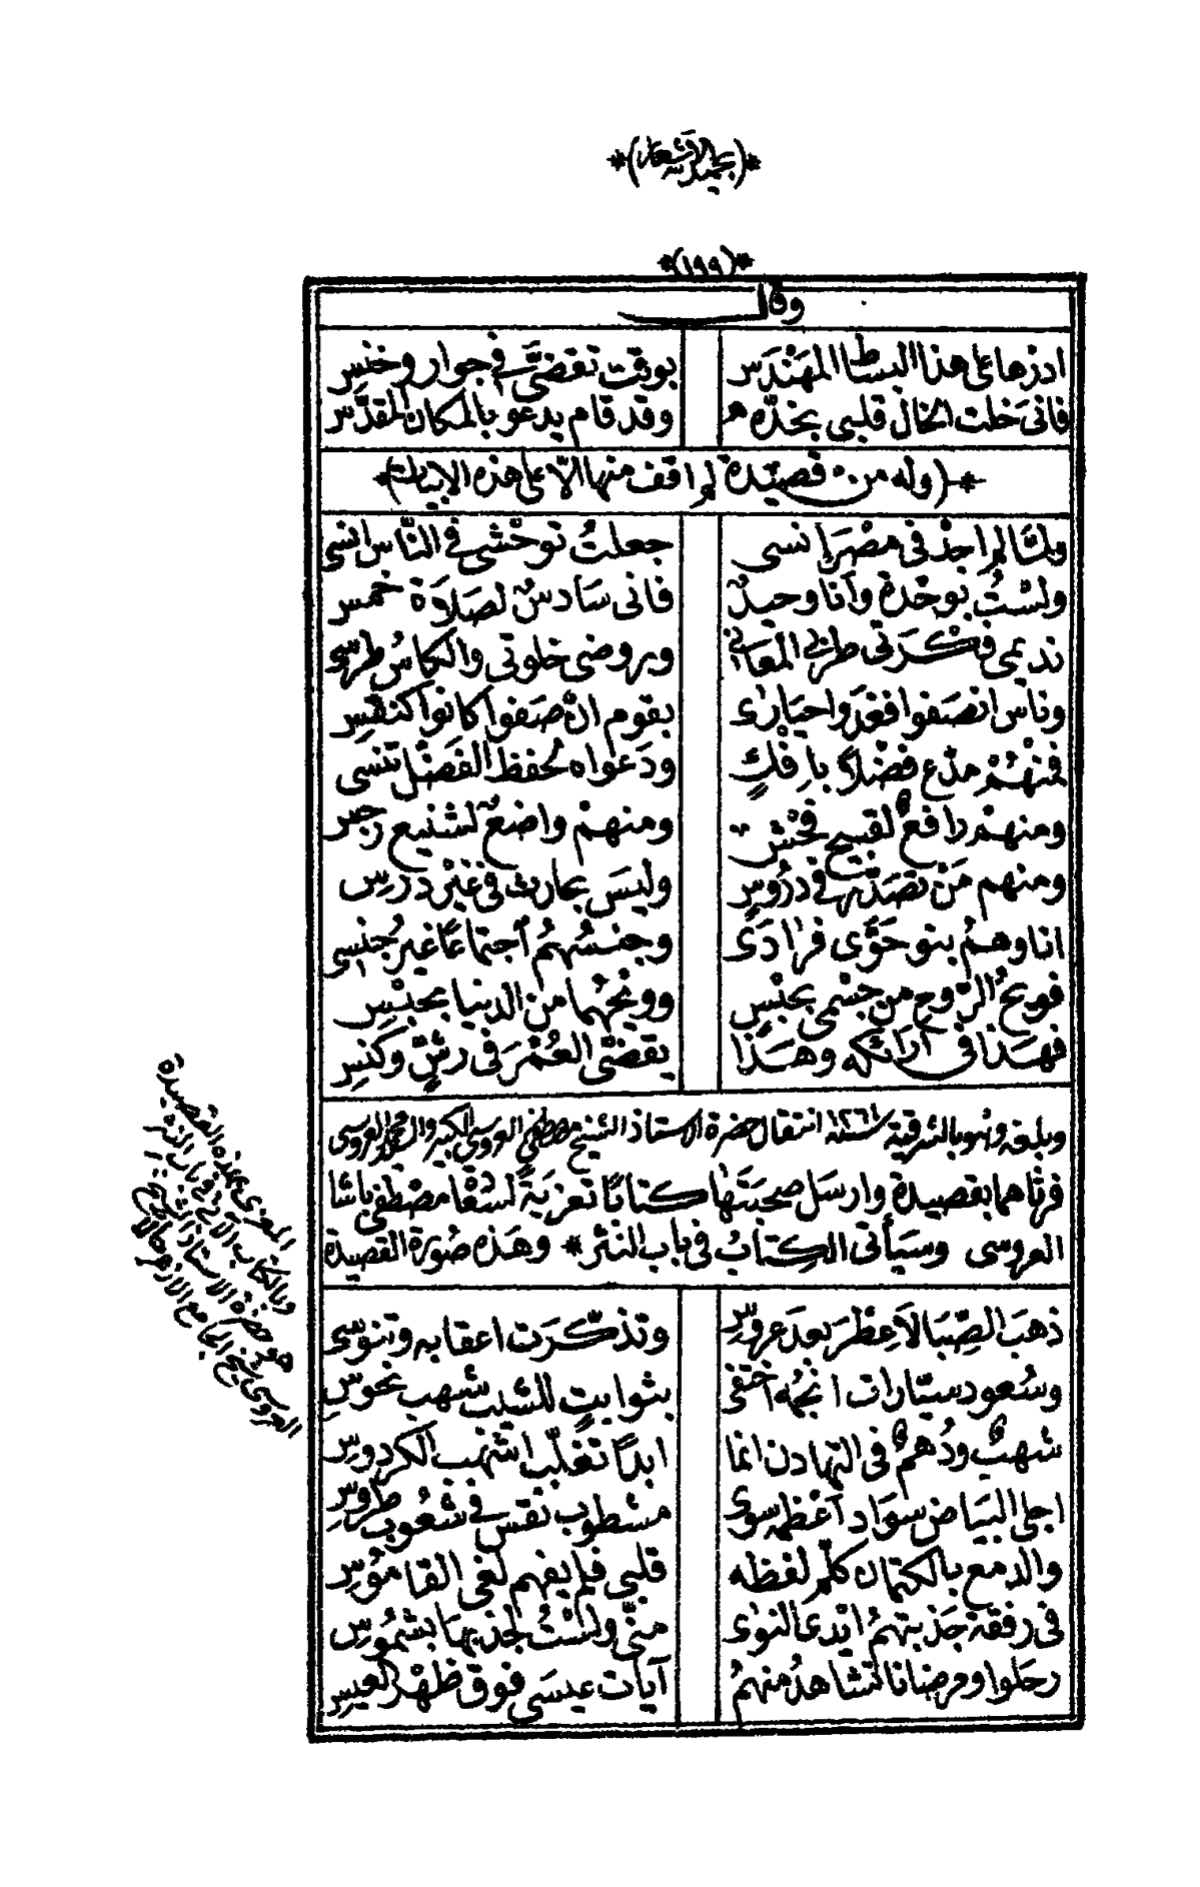 *(بحميد الاشعار)*
*(١٩٩)*
وقال
ادرها على هذا البساط المهندس بوقت تقضّى في جوار وخنس
فانى خلت الخال قلبى بخدّه وقد قام يدعو بالمكان المقدّس
*(وله من قصيدة لم اقف منها الّا على هذه الابيات)*
ولمّا لم اجدْ فى مصْرَ إنسى جعلتُ توحّشى في النّاس انسى
ولسْتُ بوحْدة وأنا وحيدٌ فانى سَادسٌ لصَلاَوَة خمس
نديمى فكْرَتى طربى المعَانى وروضى خلوتى والكاسُ طرسى
وناس انصَفوا فغدَوا حيَارى بقوم انْ صَفوا كانوا كنقسِ
فمنْهُمْ مدّع فضْلاً بافْكٍ ودَعواه لحفظ الفَضْل تنسى
ومنهمْ رافعٌ لقبيح فحْش ومنهمْ واضعٌ لشنيع رجس
ومنهم مَنْ تصَدّر فى درُوسٍ وليسَ بحارث فى غيْر درسِ
انا وهمُ بنو حَوَّى فرادَى وجنسُهمُ أجتماعًا غيرُ جنسِى
فويحُ الرّوح من جسْمى بجنْسٍ وويحُهما من الدنيا بحبْسِ
فهَذا فى أرائكه وهَذا يقضّى العُمْرَ فى رشٍّ وكنسِ
وبلغه وهو بالشرقية سنة ١٢٦١ انتقال حضرة الاستاذ الشيخ مصطفى العروسى الكبير والشيخ محمد العروسى
فرثاهما بقصيدة وارسَل صحبَتَها كتابًا تعزيَةً لسُعَا مصْطفى باشا
العروسى وسيَأتى الكِتابُ فى باب النثر * وهَذه صُورة القصيدة
ذهبَ الصِّبَا لاَ عِطْرَ بعدَ عروسِ وتذكّرَت اعقابه وتنوسى
وسُعود سيّارات انجُمه اختفى بثوابتٍ للشيْب شهب نحوسِ
شهبٌ ودُهمٌ فى التهادن انما ابدًا تغلّب اشهب الكردوسِ
اجلى البَيَاض سوَاد أعْظمه سوى مشطوب نقس في شعُوب طروسِ
والدمع بالكتمان كلّم لفظه قلبى فلم يفهم لغى القامُوسِ
فى رفقة جَذبتهمُ ايْدى النوى منّى ولسْتُ لجذبهَا بشمُوسِ
رحَلوا ومرضانا تشاهدُ منهمُ آيات عيسَى فوق ظهْر العيسِ
المعزى بهذه القصيدة
وبالكتاب الآتى فى باب النثر
هو حضرة الاستاذ الشيخ
العروسى شيخ الجامع الازهر حالا